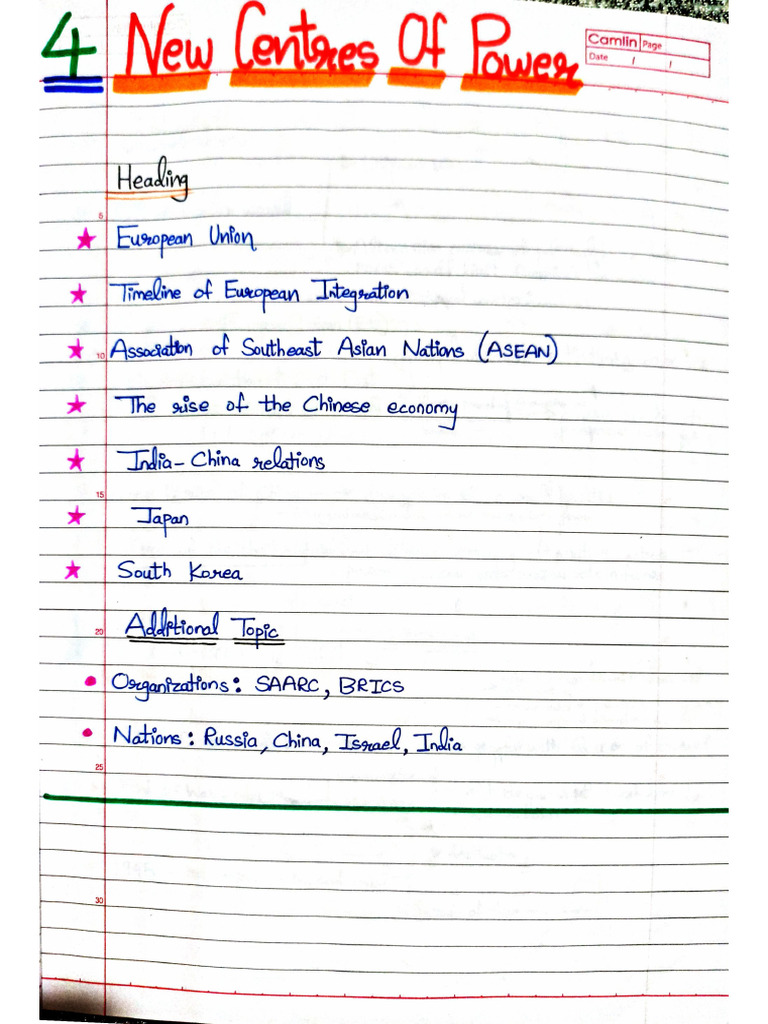 4 New Centres Of Power
Camlin Page
Date / /
Heading
5
European Union
Timeline of European Integration
10 Association of Southeast Asian Nations (ASEAN)
The rise of the Chinese economy
India-China relations
15
Japan
South Korea
20 Additional Topic
Organizations: SAARC, BRICS
Nations: Russia, China, Israel, India
25
30